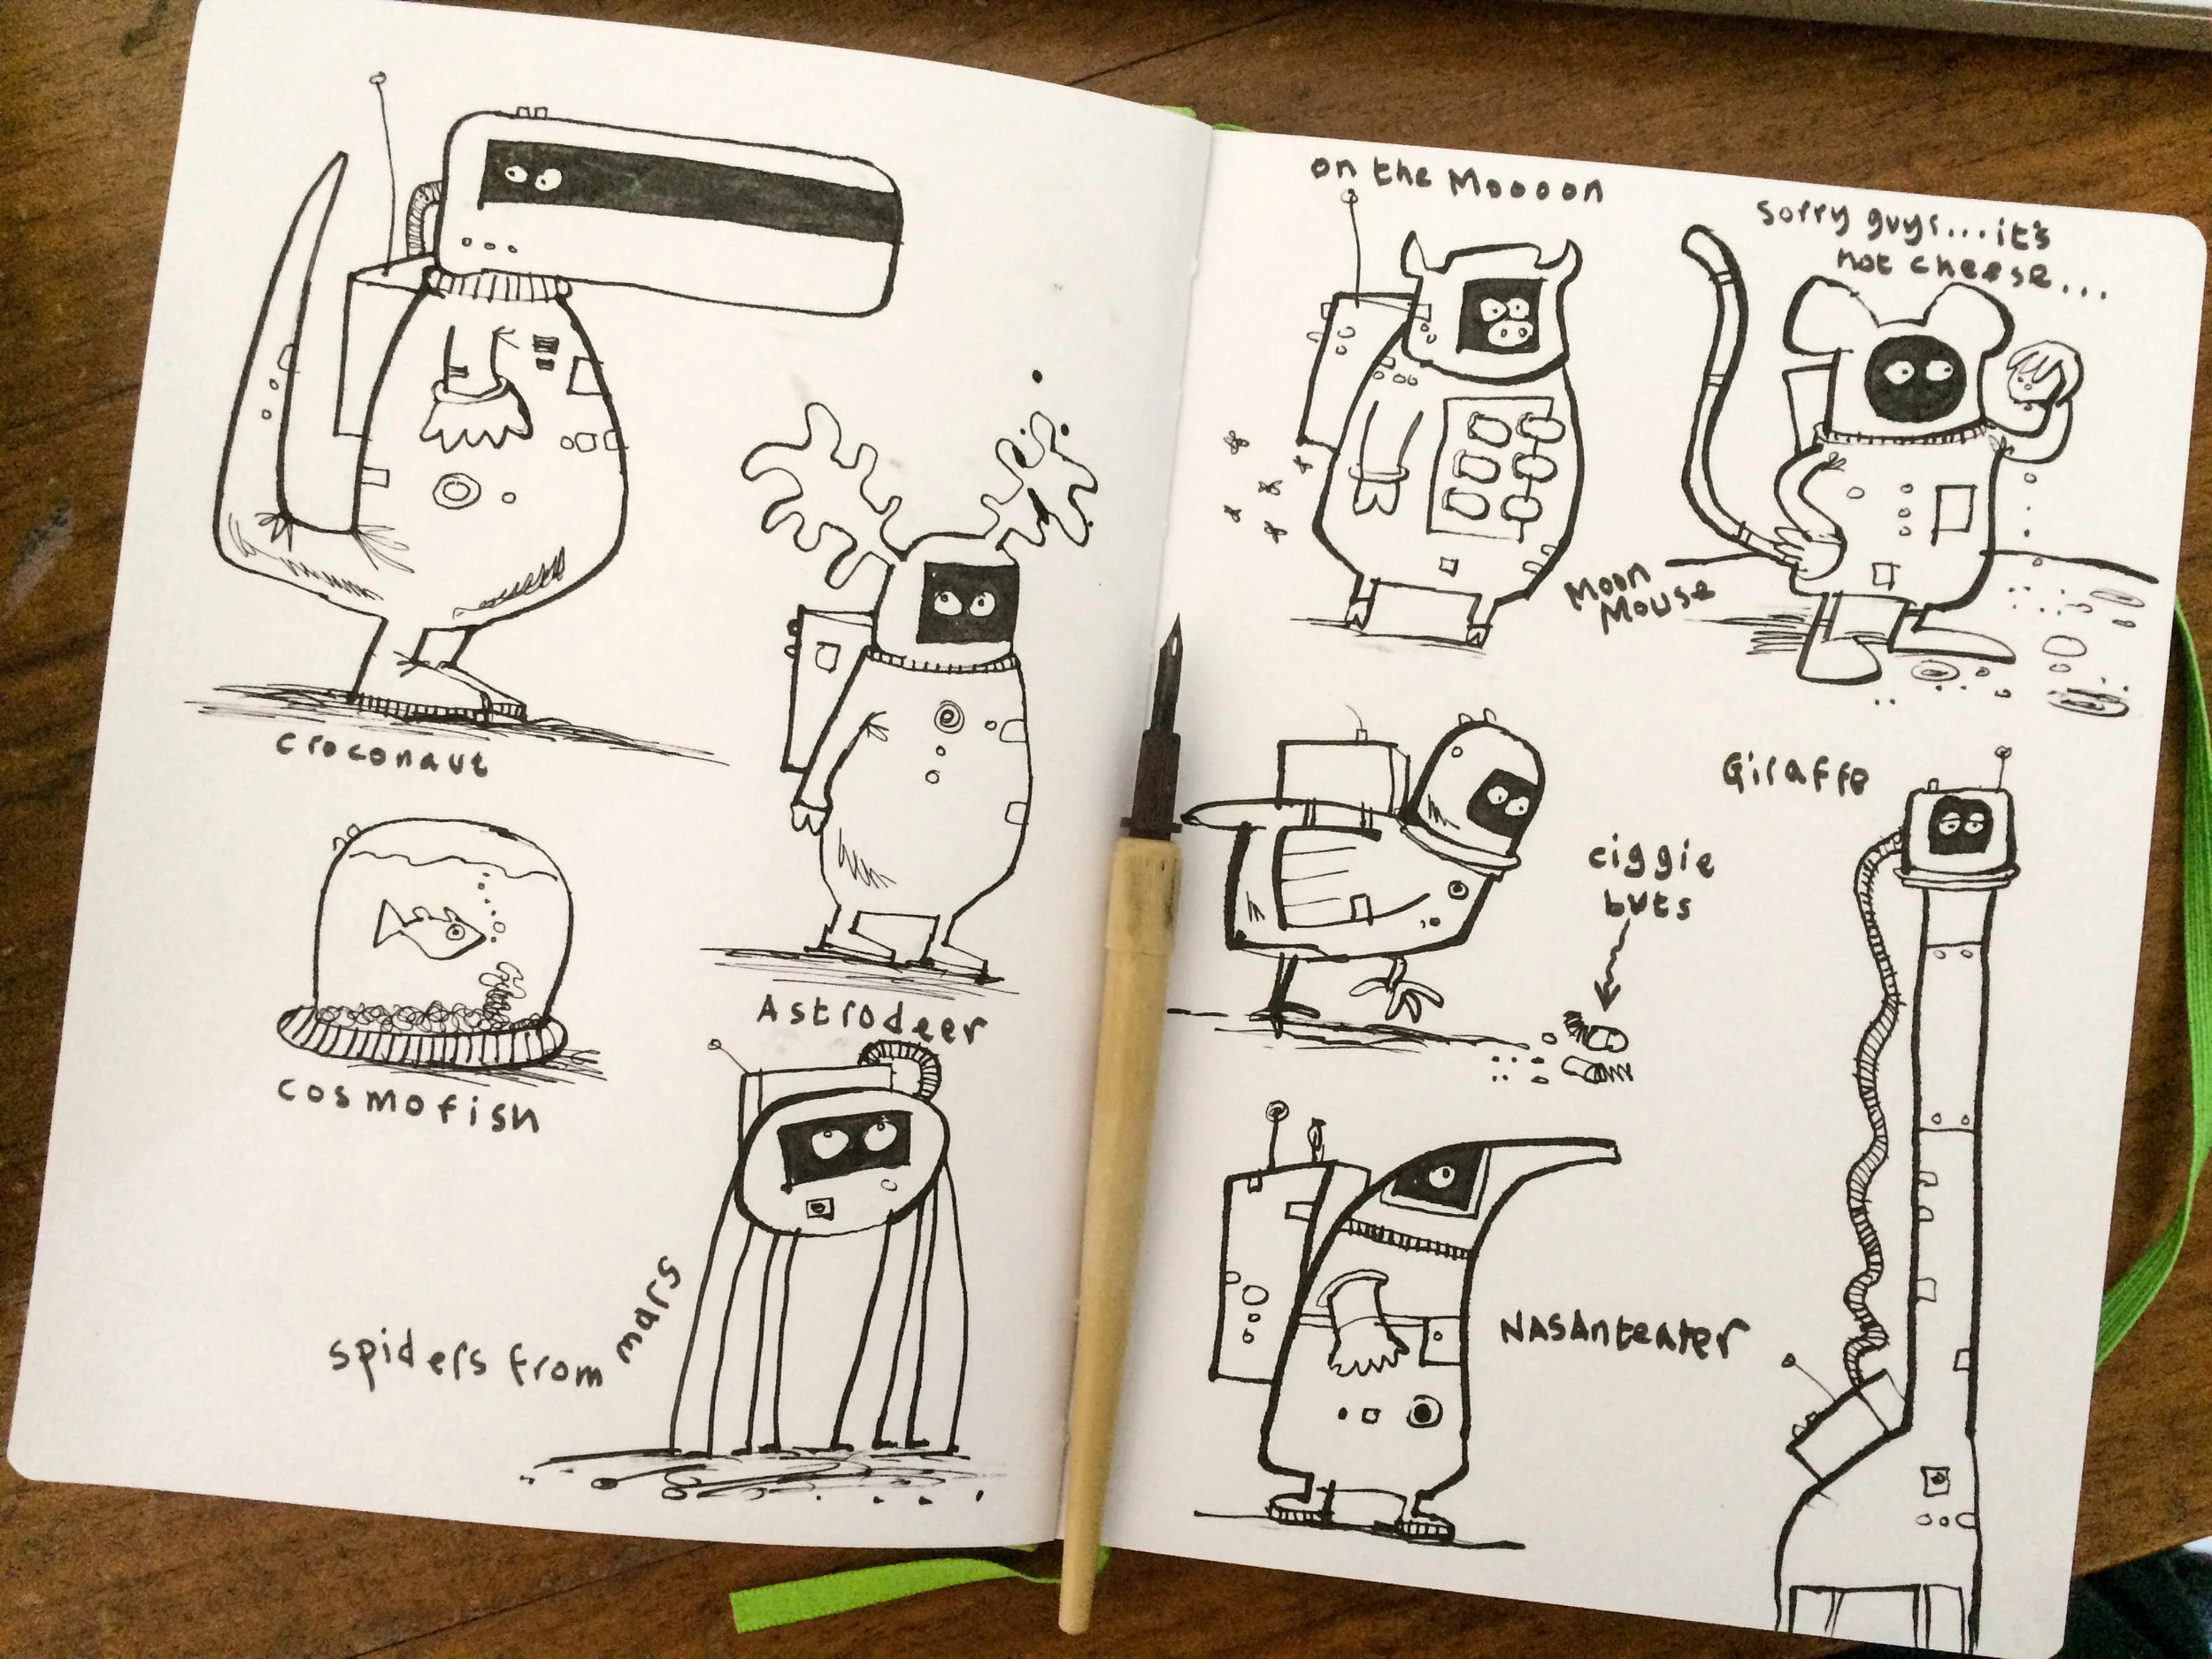 croconaut
Astrodeer
cosmofish
spiders from mars
on the Mooooon
sorry guys...it's
not cheese...
Moon
Mouse
Giraffe
ciggie
buts
NASAnteater